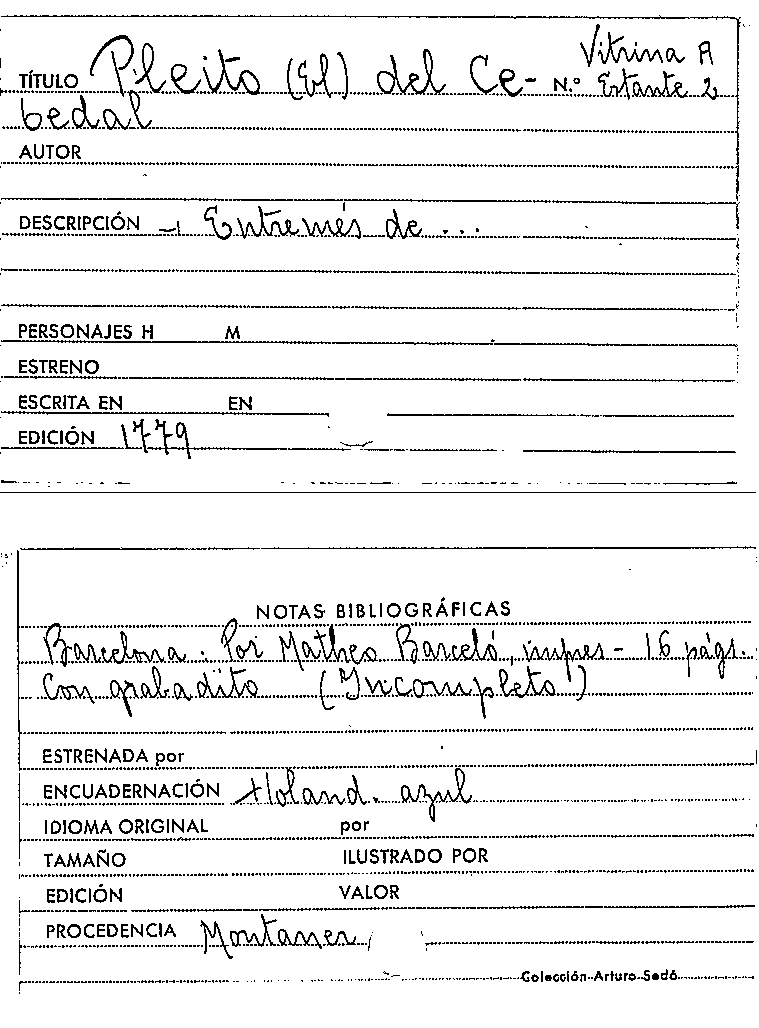 Vitrina A
TÍTULO Pleito (El) del Ce- N.º Estante 2
bedal
AUTOR
DESCRIPCIÓN - Entremés de ...
PERSONAJES H M
ESTRENO
ESCRITA EN EN
EDICIÓN 1779
NOTAS BIBLIOGRÁFICAS
Barcelona. Por Matheo Barceló, impres - 16 págs.
Con grabadito (Incompleto)
ESTRENADA por
ENCUADERNACIÓN Holand. azul
IDIOMA ORIGINAL por
TAMAÑO ILUSTRADO POR
EDICIÓN VALOR
PROCEDENCIA Montaner
Colección Arturo Sedó